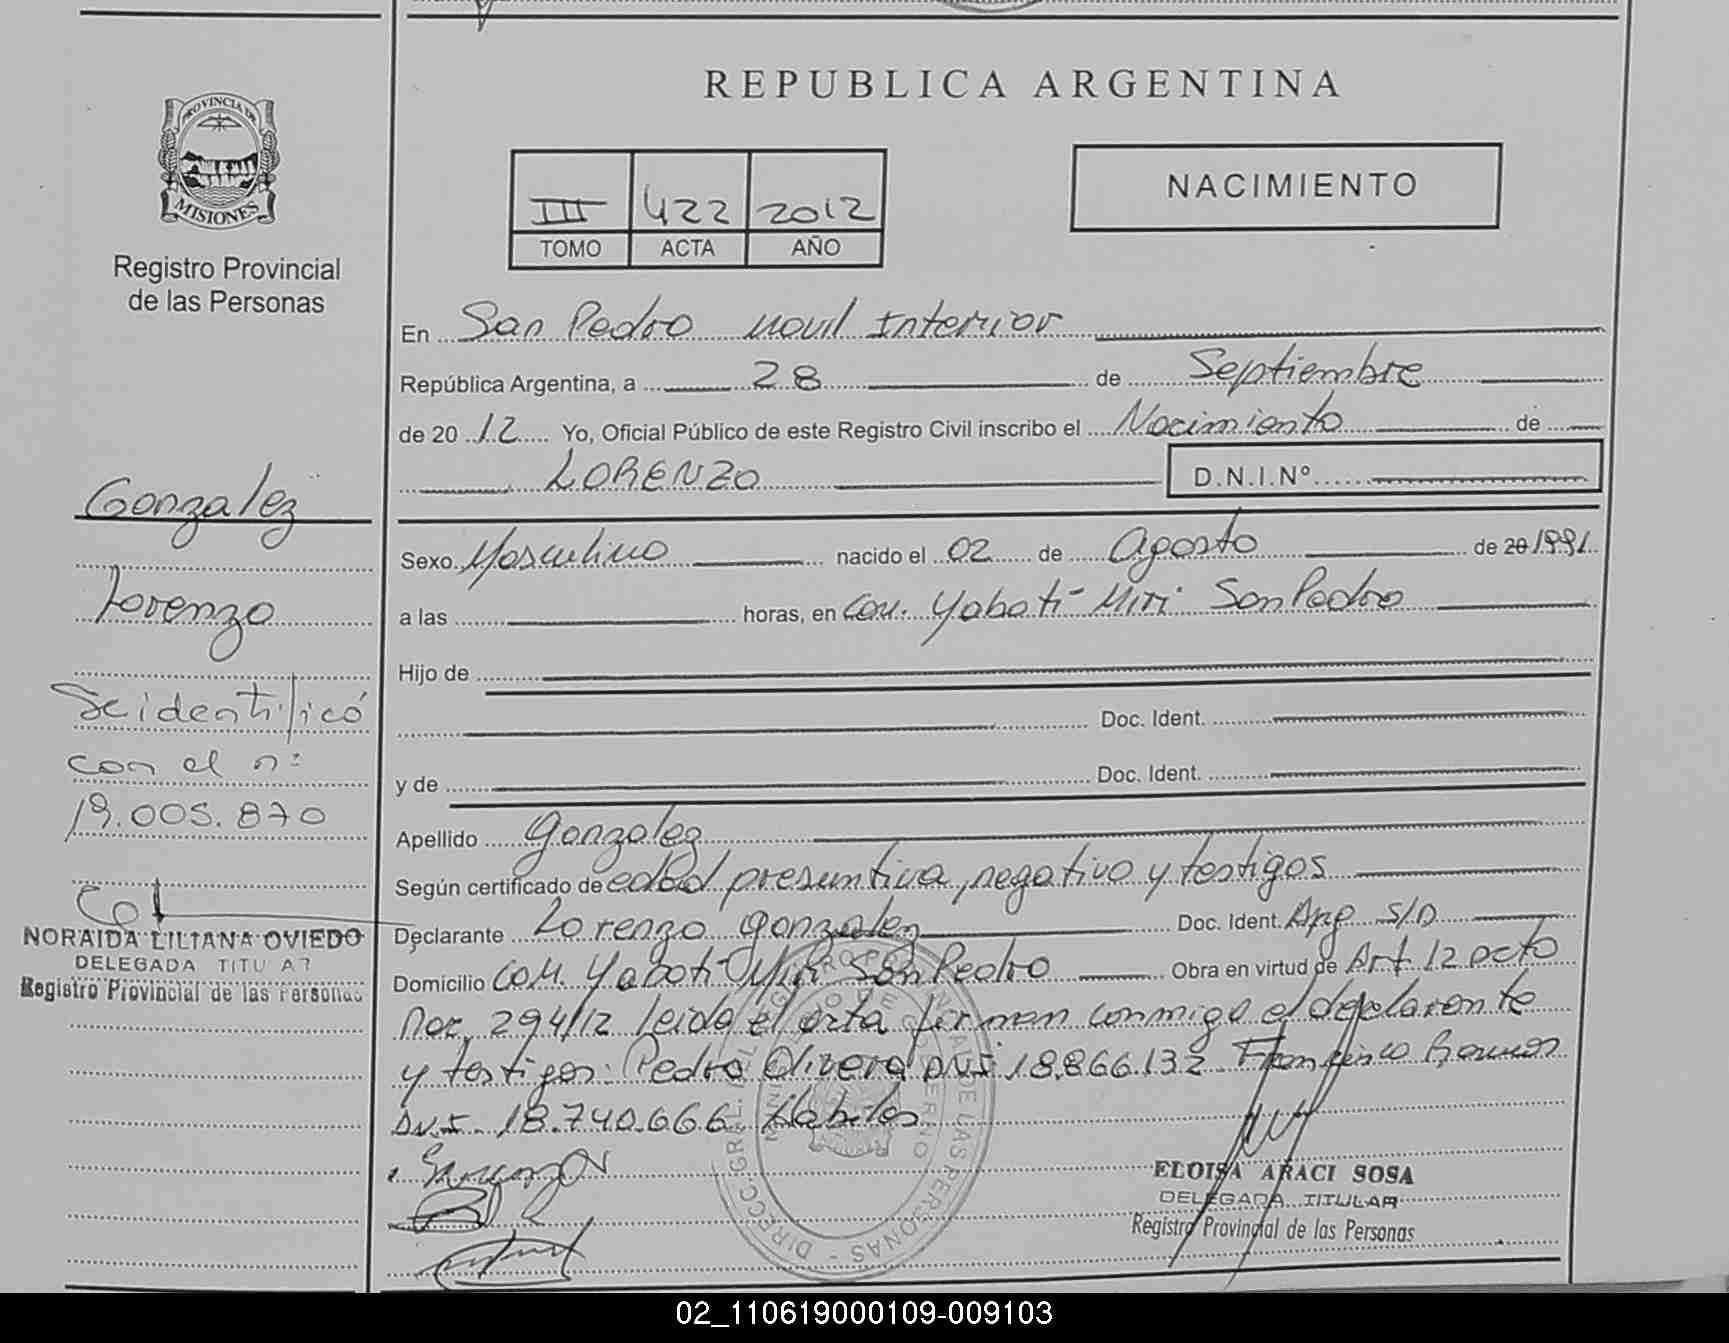 REPUBLICA ARGENTINA
PROVINCIA DE
MISIONES
Registro Provincial
de las Personas
III 422 2012
TOMO ACTA AÑO
NACIMIENTO
En San Pedro Movil Interior
República Argentina, a 28 de Septiembre
de 2012 Yo, Oficial Público de este Registro Civil inscribo el Nacimiento de
LORENZO D.N.I.Nº
Sexo Masculino nacido el 02 de Agosto de 20 1991
a las horas, en Com. Yaboti Miri San Pedro
Hijo de
Doc. Ident.
y de Doc. Ident.
Apellido Gonzalez
Según certificado de edad presuntiva, negativo y testigos
Declarante Lorenzo Gonzalez Doc. Ident. Arg. S/D
Domicilio Com. Yaboti Miri San Pedro Obra en virtud de Art 12 Dcto
Nac. 294/12 leida el acta firman conmigo el declarante
y testigos: Pedro Olivera DNI 18.866.132 Francisco Ramos
DNI 18.740.666 Habiles
ELOISA ARACI SOSA
DELEGADA TITULAR
Registro Provincial de las Personas
Gonzalez
Lorenzo
Se identificó
con el nº
19.005.870
NORAIDA LILIANA OVIEDO
DELEGADA TITULAR
Registro Provincial de las Personas
02_110619000109-009103